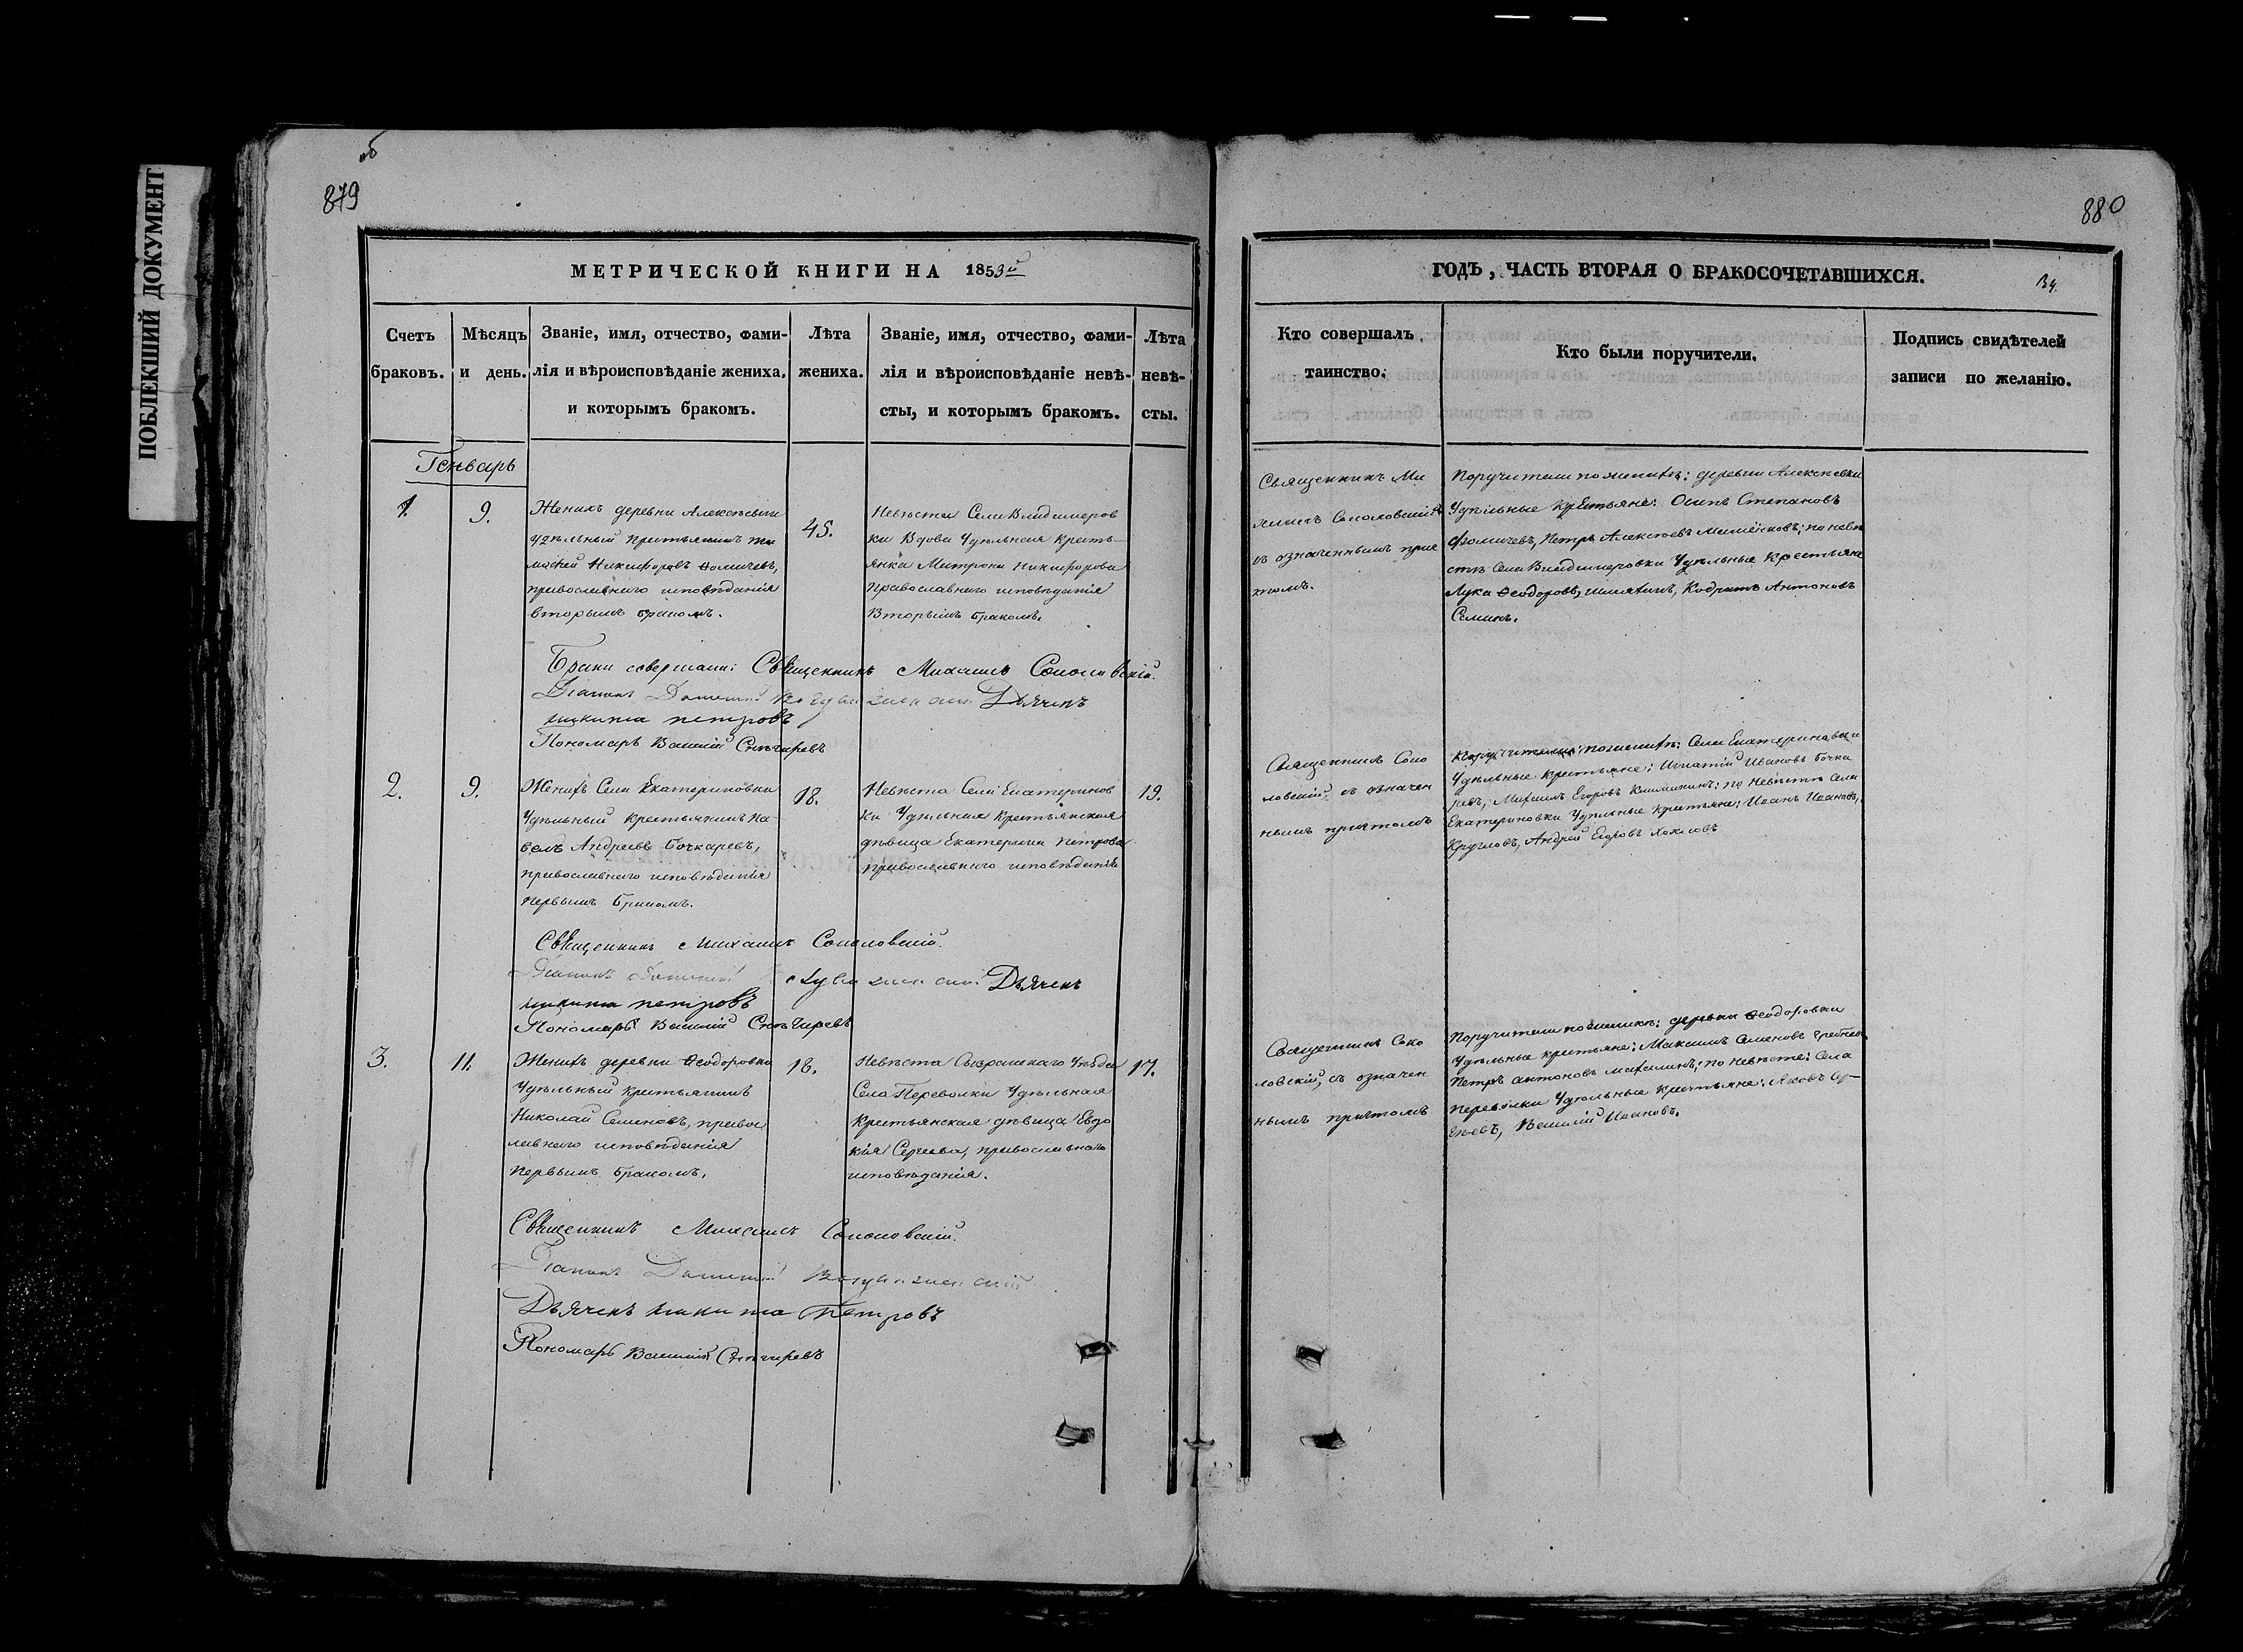 ПОБЛЕКШИЙ ДОКУМЕНТ
об
879
880
МЕТРИЧЕСКОЙ КНИГИ НА 1853й
ГОДЪ, ЧАСТЬ ВТОРАЯ О БРАКОСОЧЕТАВШИХСЯ.
134
Счетъ
браковъ.
Мѣсяцъ
и день.
Званіе, имя, отчество, фами-
лія и вѣроисповѣданіе жениха,
и которымъ бракомъ.
Лѣта
жениха.
Званіе, имя, отчество, фами-
лія и вѣроисповѣданіе невѣ-
сты, и которымъ бракомъ.
Лѣта
невѣ-
сты.
Кто совершалъ
таинство.
Кто были поручители.
Подпись свидѣтелей
записи по желанію.
Генварь
1.
9.
Женихъ деревни Алексѣевки
удѣльный крестьянинъ Ти
мофей Никифоровъ Ѳомичевъ,
православнаго исповѣданія
вторымъ бракомъ.
45.
Невѣста Села Владимеров
ки Вдова Удѣльная кресть-
янка Матрона Никифорова
Православнаго исповѣданія
Вторымъ бракомъ.
Священникъ Ми
хаилъ Соколовскій
съ означеннымъ прич
томъ.
Поручители по женихѣ: деревни Алексѣевки
Удѣльные крестьяне: Осипъ Степановъ
Фомичевъ, Петръ Алексѣевъ; по невѣ
стѣ Села Владимеровки Удѣльные Крестьяне
Лука Ѳеодоровъ, Кодратъ Антоновъ
Семинъ.
Браки совершали: Священникъ Михаилъ Соколовскій.
Діаконъ Дьячекъ
никита петровъ
Пономарь Василій Снѣгиревъ
2.
9.
Женихъ Села Екатериновки
Удѣльный крестьянинъ Па-
велъ Андреевъ Бочкаревъ,
православнаго исповѣданія
первымъ бракомъ.
18.
Невѣста Села Екатеринов
ки Удѣльная крестьянская
дѣвица Екатерина Петрова
православнаго исповѣданія
19.
Священникъ Соко
ловскій съ означен
нымъ причтомъ
Поручители по женихѣ: Села Екатериновки
Удѣльные крестьяне: Игнатій Ивановъ Бочка
ревъ, Михаилъ Егоровъ; по Невѣстѣ Села
Екатериновки Удѣльные крестьяне: Иванъ Ивановъ,
Кругловъ, Андрей Егоровъ
Священникъ Михаилъ Соколовскій.
Діаконъ Дьячекъ
никита петровъ
Пономарь Василій Снѣгиревъ
3.
11.
Женихъ деревни Ѳеодоровки
Удѣльный крестьянинъ
Николай Семеновъ, правос
лавнаго исповѣданія
первымъ бракомъ,
18.
Невѣста Сызранскаго Уѣзда
Села Переволоки Удѣльная
крестьянская дѣвица Евдо
кія Сергеева, православнаго
исповѣданія.
17.
Священникъ Соко
ловскій, съ означен
нымъ причтомъ
Поручители по женихѣ: деревни Ѳеодоровки
Удѣльные крестьяне: Максимъ Семеновъ
Петръ антоновъ; по невѣсте: Села
Переволоки Удѣльные крестьяне: Яковъ Сер-
гѣевъ, Василій Ивановъ.
Священникъ Михаилъ Соколовскій.
Діаконъ
Дьячекъ никита Петровъ
Пономарь Василій Снѣгиревъ